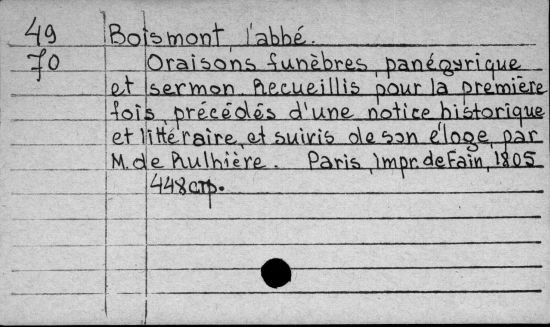 49 Boismont, l'abbé.
70 Oraisons funèbres, panégyrique
et sermon. Recueillis pour la première
fois, précédés d'une notice historique
et littéraire, et suivis de son éloge, par
M. de Rulhière. Paris, Impr. de Fain, 1805
448 p.